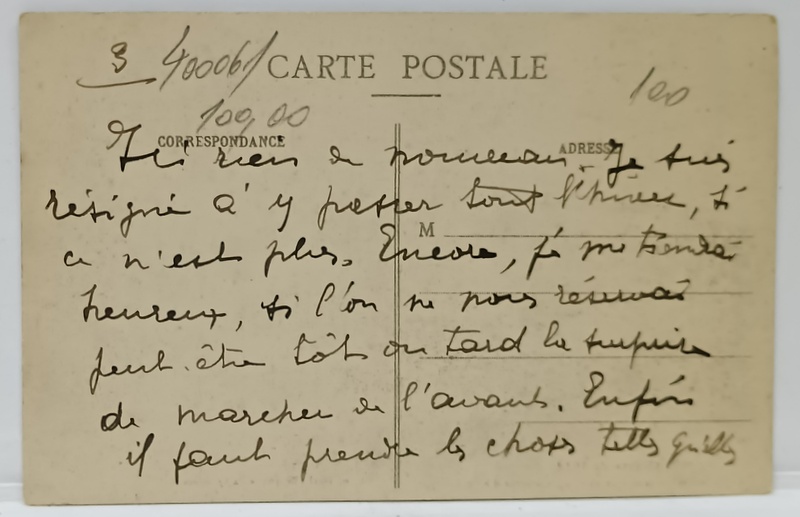 3 400061 CARTE POSTALE
100,00 100
CORRESPONDANCE ADRESSE
M
Ici rien de nouveau. Je suis
résigné à y passer tout l'hiver, si
ce n'est plus. Encore, je me tiendrai
heureux, si l'on ne nous réservait
peut-être tôt ou tard la surprise
de marcher de l'avant. Enfin
il faut prendre les choses telles qu'elles